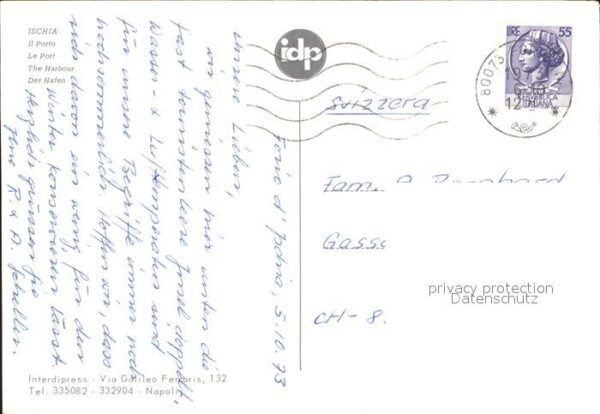 ISCHIA
Il Porto
Le Port
The Harbour
Der Hafen
idp
LIRE 55
80073
19
5.10
12
Svizzera
Forio d'Ischia, 5.10.73
Unsere Lieben,
wir geniessen hier unten die
fast touristenleere Insel doppelt,
Wasser- & Lufttemperatur sind
für unsere Begriffe immer noch
hochsommerlich. Hoffen wir, dass
sich davon ein wenig für den
Winter konservieren lässt.
Herzlich grüssen Sie
Ihre R. & A.
Fam. A.
Gasse
CH-8.
privacy protection
Datenschutz
Interdipress - Via Galileo Ferraris, 132
Tel. 335082 - 332904 - Napoli